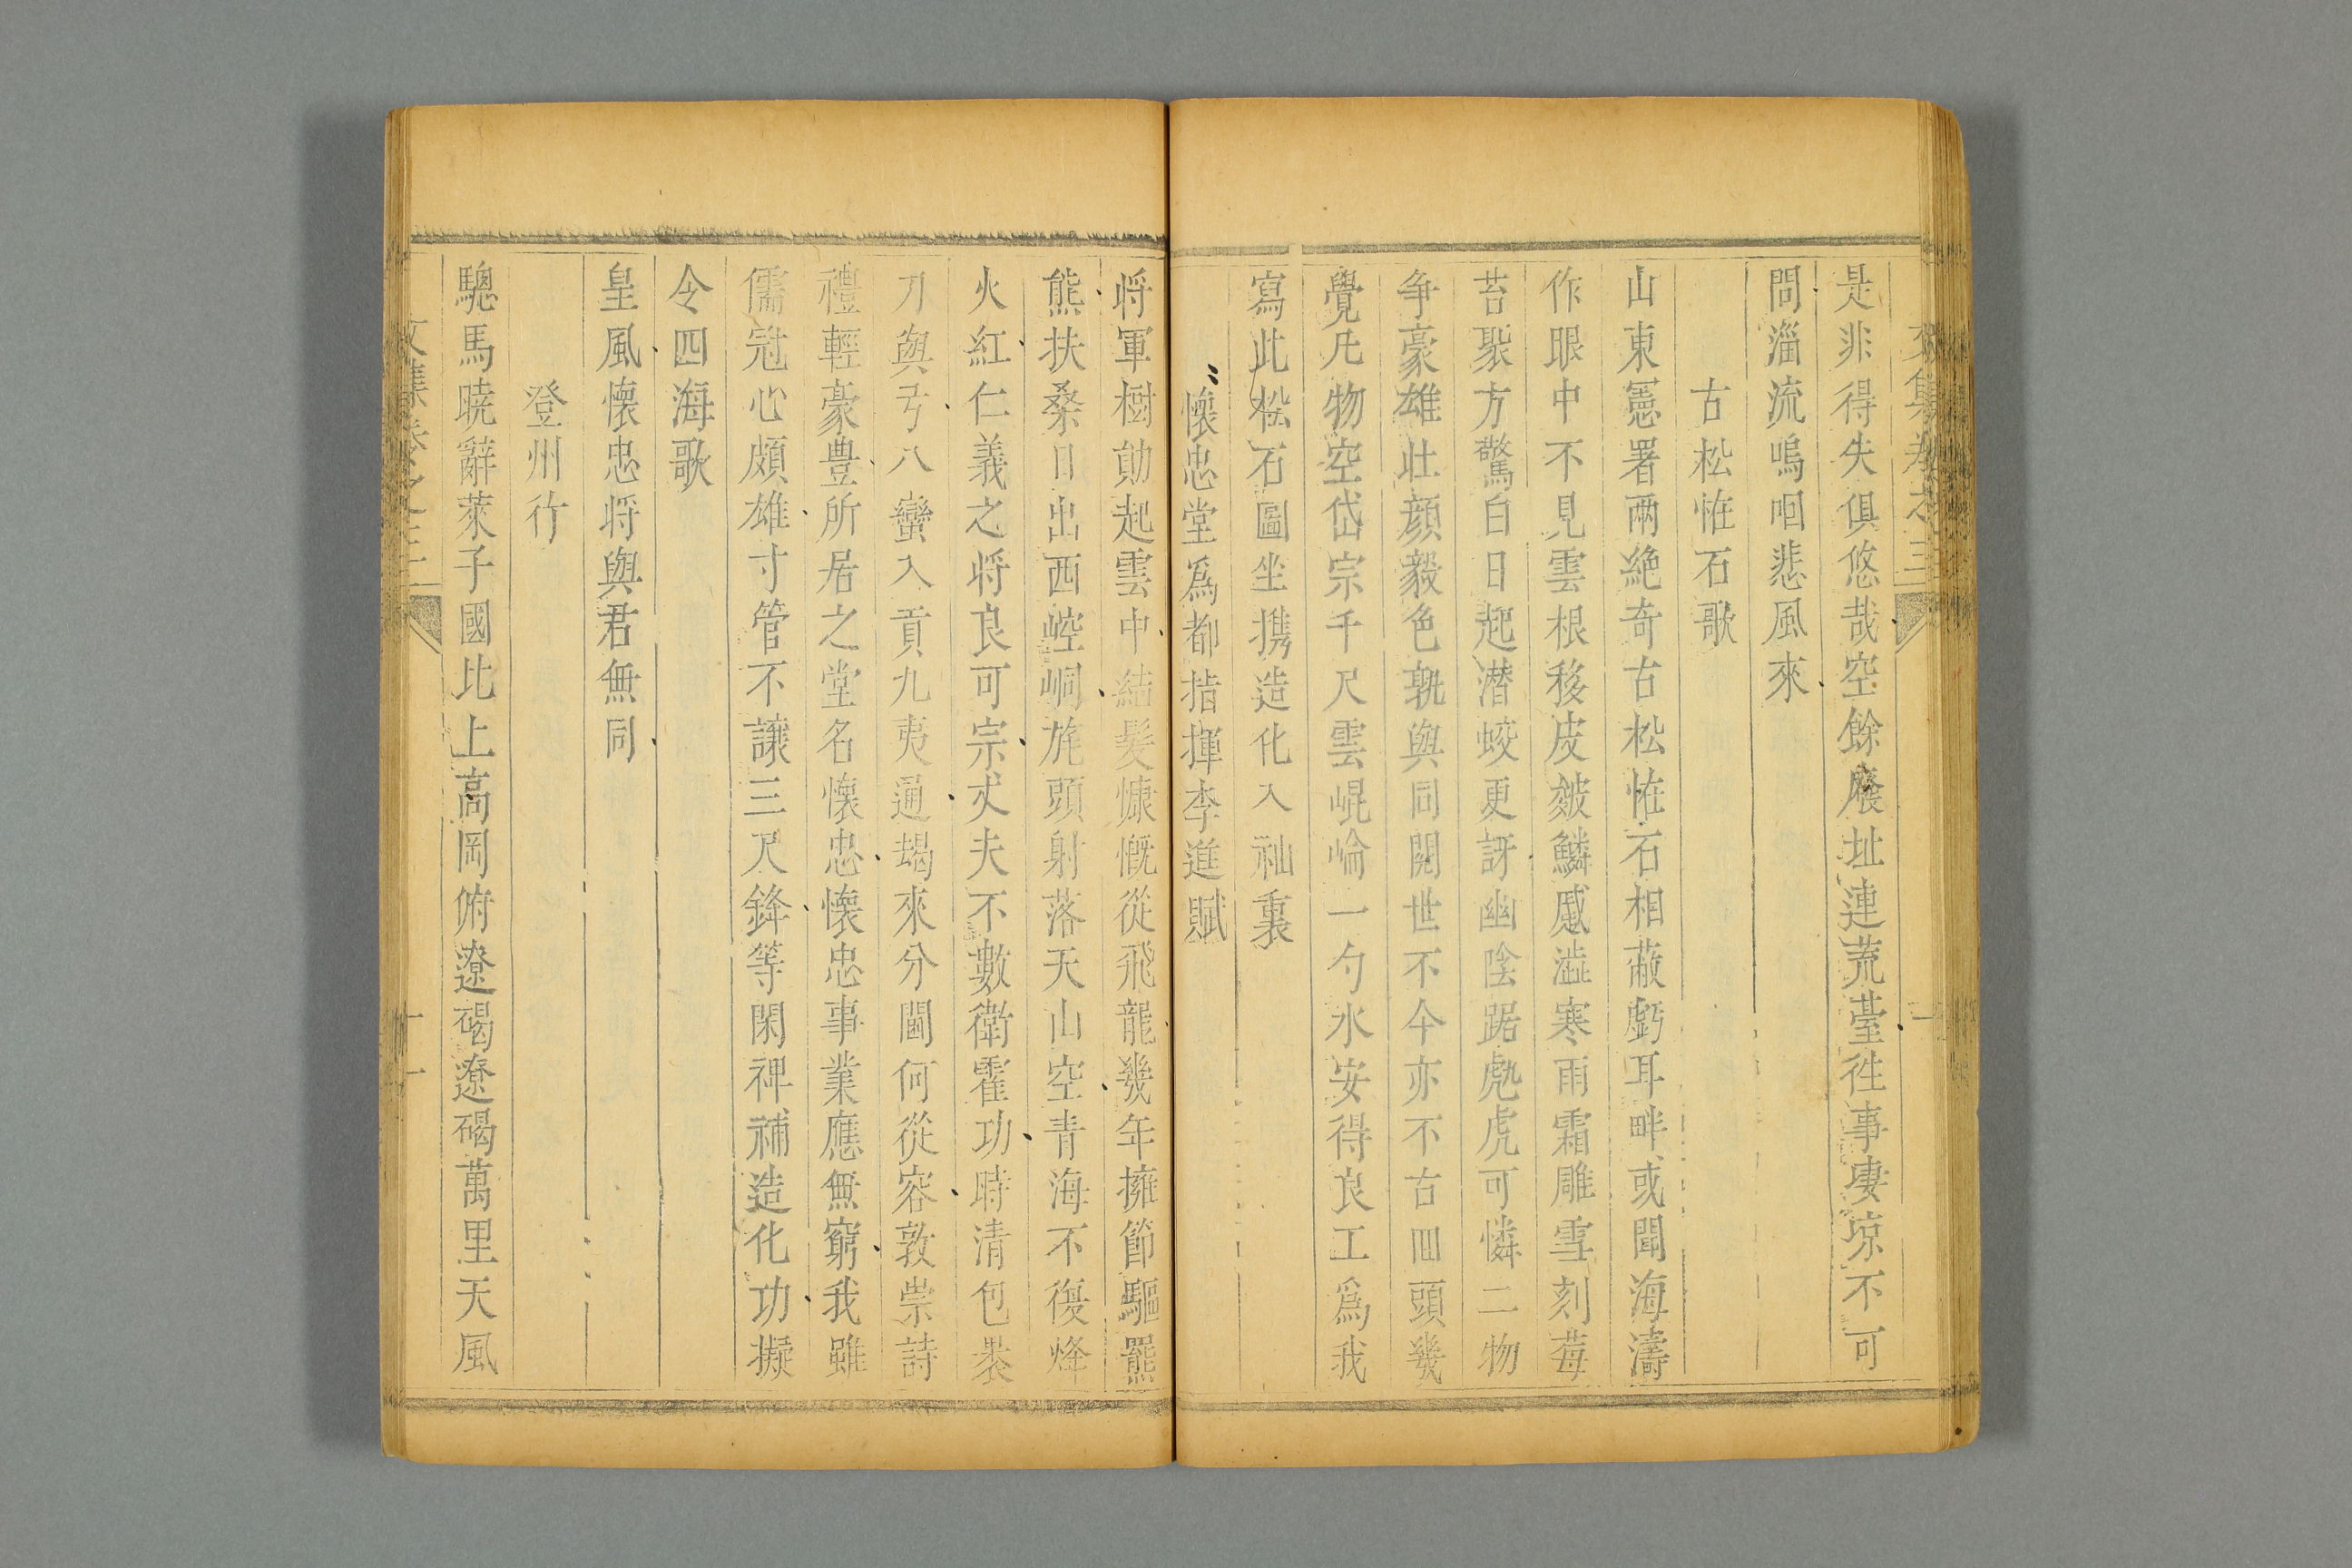 是非得失俱悠哉空餘廢址連荒臺徃事凄凉不可
問淄流嗚咽悲風來
古松恠石歌
山東憲署兩絶奇古松恠石相蔽虧耳畔或聞海濤
作眼中不見雲根移皮皴鱗蹙澁寒雨霜雕雪刻莓
苔聚方驚白日起潜蛟更訝幽陰踞虎可憐二物
争豪雄壮顔毅色孰與同閱世不今亦不古回頭幾
覺凡物空岱宗千尺雲崐崘一勺水安得良工爲我
寫此松石圖坐携造化入袖裏
懷忠堂爲都指揮李進賦
将軍樹勛起雲中結髪慷慨從飛龍幾年擁節驅羆
熊扶桑日出西崆峒旄頭射落天山空青海不復烽
火紅仁義之将良可宗丈夫不數衛霍功時清包褁
刀與弓八蠻入貢九夷通朅來分閫何從容敦崇詩
禮輕豪豊所居之堂名懷忠懷忠事業應無窮我雖
儒冠心頗雄寸管不讓三尺鋒等閑裨補造化功擬
令四海歌
皇風懐忠将與君無同
登州行
驄馬曉辭萊子國北上高岡俯遼碣遼碣萬里天風
文集卷之三
十一